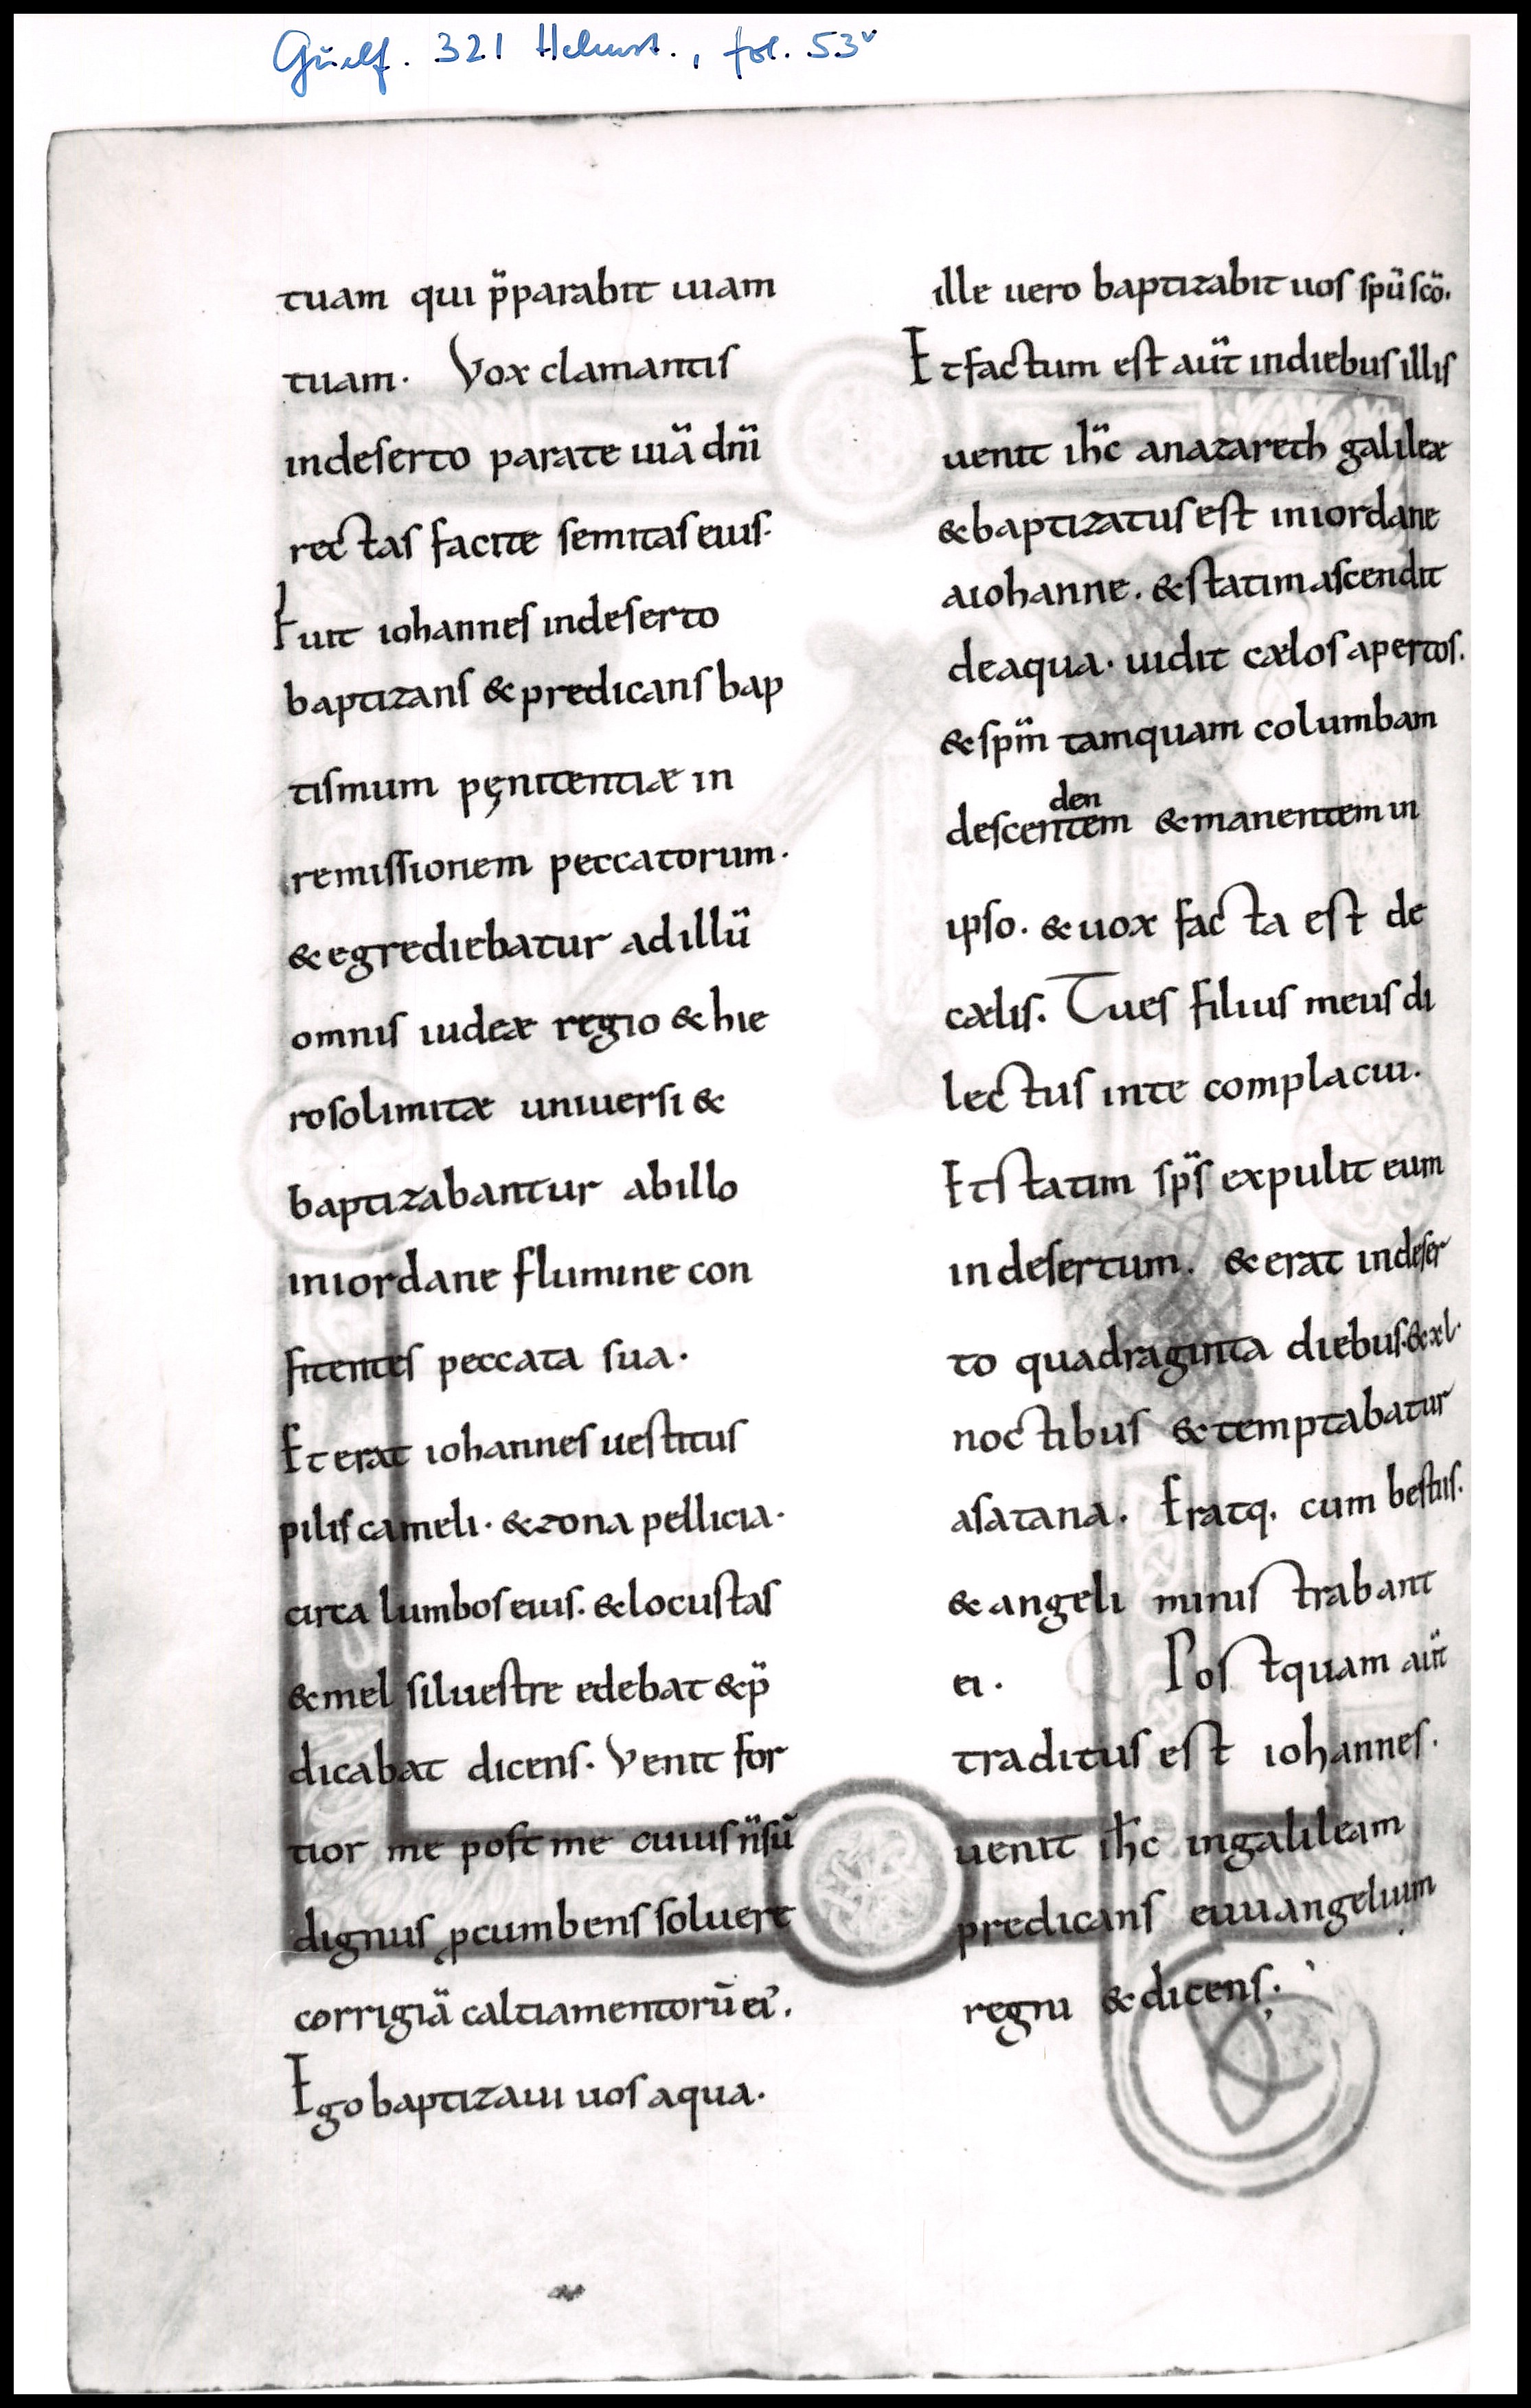 Guelf. 321 Helmst., fol. 53v
tuam qui p̈parabit uiam
tuam. Vox clamantis
indeserto parate uiä dn̈i
rectas facite semitas eius.
Fuit iohannes indeserto
baptizans & predicans bap
tismum pęnitentiæ in
remissionem peccatorum.
& egrediebatur ad illü
omnis iudeæ regio & hie
rosolimitæ uniuersi &
baptizabantur abillo
iniordane flumine con
fitentes peccata sua.
Et erat iohannes uestitus
pilis cameli. & zona pellicia.
circa lumbos eius. & locustas
& mel siluestre edebat & p̈
dicabat dicens. Venit for
tior me post me cuius n̈ sū
dignus ꝓcumbens soluere
corrigiä calciamentorū ei᾽.
Ego baptizaui uos aqua.
ille uero baptizabit uos spü scö.
Et factum est aüt indiebus illis
uenit iḧc anazareth galileæ
& baptizatus est iniordane
aiohanne. & statim ascendit
deaqua. uidit cælos apertos.
& sp̈m tamquam columbam
den
descentem & manentem in
ipso. & uox facta est de
cælis. Tues filius meus di
lectus inte complacui.
Et statim sp̈s expulit eum
indesertum. & erat indeser
to quadraginta diebus. & xl.
noctibus & temptabatur
asatana. Eratq. cum bestiis.
& angeli ministrabant
ei. Postquam aüt
traditus est iohannes.
uenit ih̅c ingalileam
predicans euuangelium
regni & dicens;